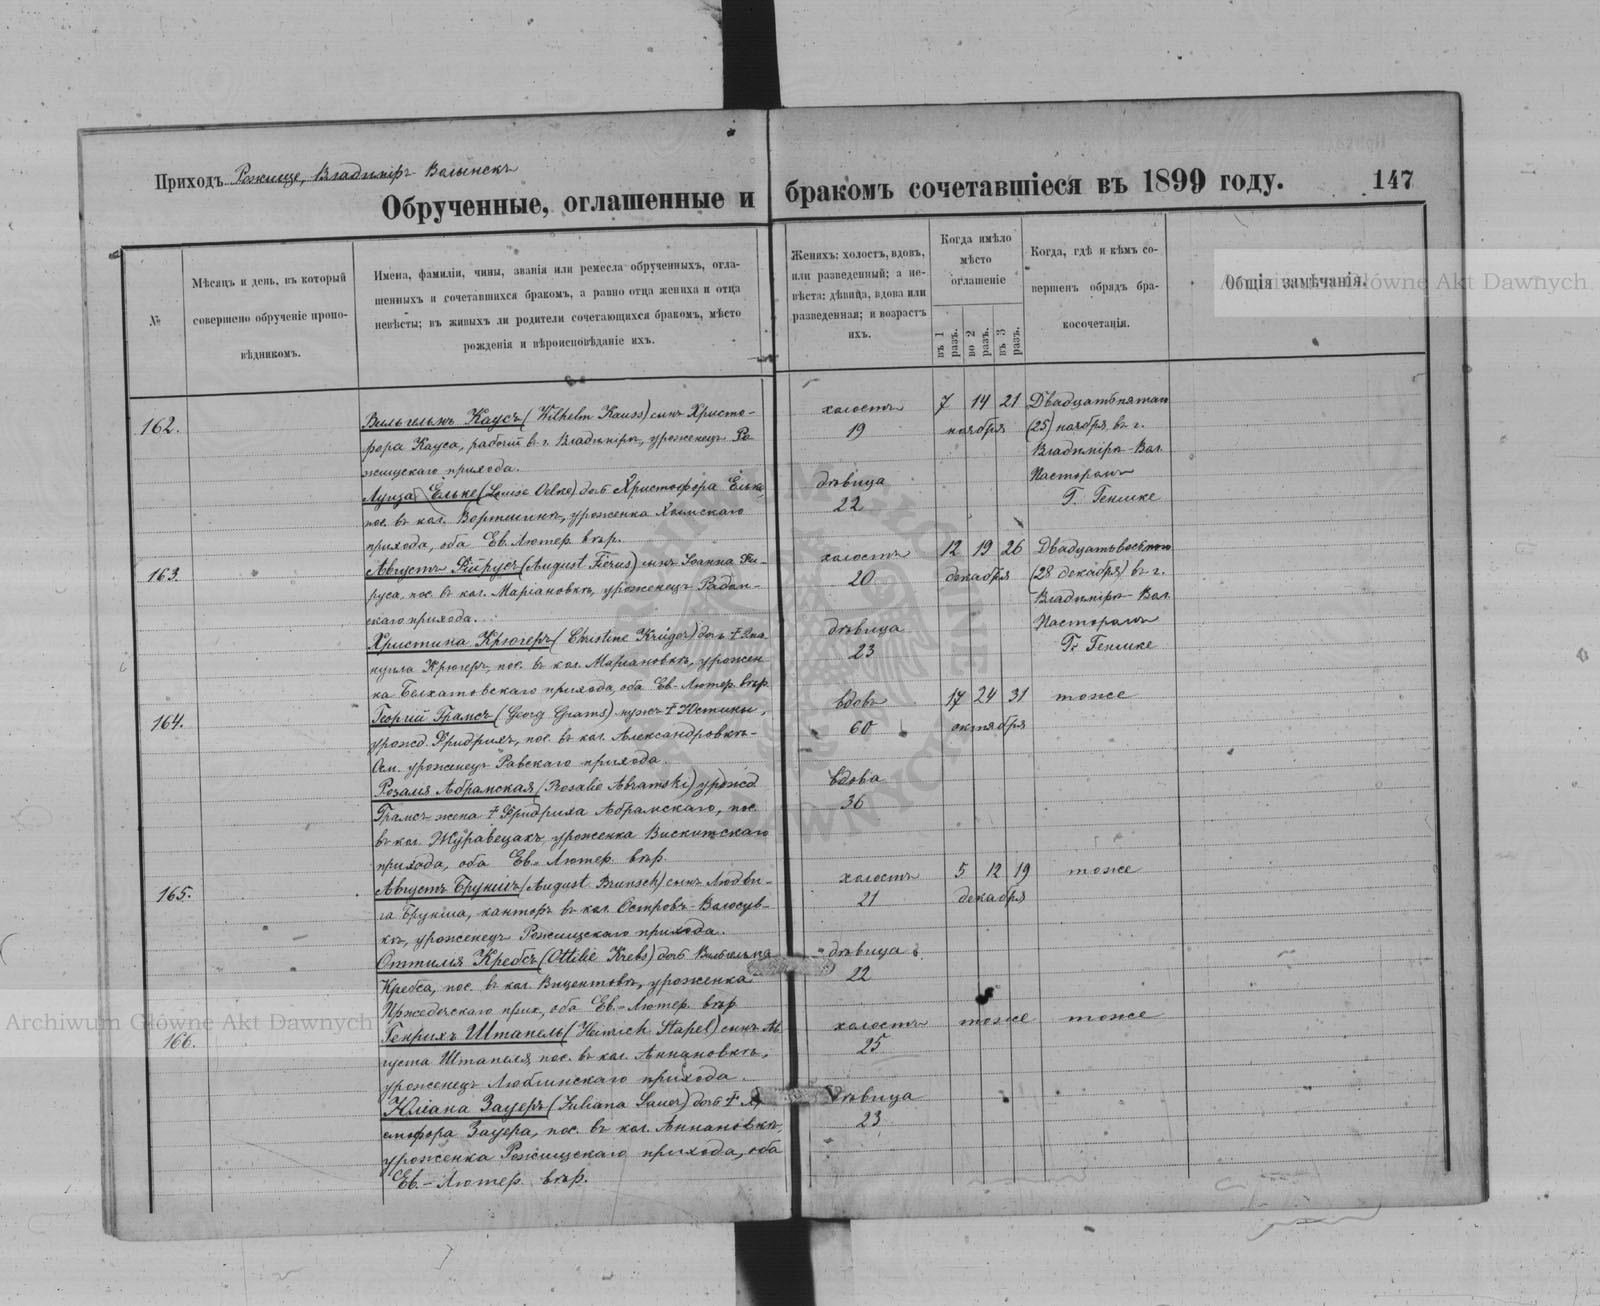 Приходъ Рожище, Владимiръ Волынскъ
Обрученные, оглашенные и бракомъ сочетавшiеся въ 1899 году.
147
№
Мѣсяцъ и день, въ который
совершено обрученiе пропо-
вѣдникомъ.
Имена, фамилiи, чины, званiя или ремесла обрученныхъ, огла-
шенныхъ и сочетавшихся бракомъ, а равно отца жениха и отца
невѣсты; въ живыхъ ли родители сочетающихся бракомъ, мѣсто
рожденiя и вѣроисповѣданiе ихъ.
Женихъ: холостъ, вдовъ,
или разведенный; а не-
вѣста: дѣвица, вдова или
разведенная; и возрастъ
ихъ.
Когда имѣло
мѣсто
оглашенiе
въ 1 разъ.
во 2 разъ.
въ 3 разъ.
Когда, гдѣ и кѣмъ со-
вершенъ обрядъ бра-
косочетанiя.
Общiя замѣчанiя.
Archiwum Główne Akt Dawnych
162.
Вильгельмъ Каусъ (Wilhelm Kauss) сынъ Христо-
фора Кауса, рабочiй въ г. Владимiрѣ, уроженецъ Ро-
жищскаго прихода.
Луиза Ельке (Louise Oelke) дочь Христофора Ельке,
пос. въ кол. уроженка Холмскаго
прихода, оба Ев. Лютер. вѣр.
холостъ
19
дѣвица
22
7 14 21
ноября
Двадцатьпятаго
(25) ноября, въ г.
Владимiрѣ-Вол.
Пасторомъ
Г. Генике
163.
Августъ Фирусъ (August Fierus) сынъ Iоанна Фи-
руса, пос. въ кол. Марiановкѣ, уроженецъ Радом-
скаго прихода.
Христина Крюгеръ (Christine Krüger) дочь †
Крюгеръ, пос. въ кол. Марiановкѣ, урожен
ка Белхатовскаго прихода, оба Ев.-Лютер. вѣр.
холостъ
20
дѣвица
23
12 19 26
декабря
Двадцатьвосьмого
(28 декабря) въ г.
Владимiрѣ-Вол.
Пасторомъ
Г. Генике
164.
Георгiй Грамсъ (Georg Grams) мужъ † Юстины,
урожд. Фридрихъ, пос. въ кол. Александровкѣ-
уроженецъ Равскаго прихода.
Розалiя Абрамская (Rosalie Abramski) урожд.
Грамсъ жена † Фридриха Абрамскаго, пос.
въ кол. Журавецахъ, уроженка Вискитскаго
прихода, оба Ев.-Лютер. вѣр.
вдовъ
60
вдова
36
17 24 31
октября
тоже
165.
Августъ Бруншъ (August Brunsch) сынъ Людви-
га Брунша, канторъ въ кол. Островъ-Волосув-
кѣ, уроженецъ Рожищскаго прихода.
Оттилiя Кребсъ (Ottilie Krebs) дочь Вильгельма
Кребса, пос. въ кол. Вицентовкѣ, уроженка
Пржедечскаго прих., оба Ев.-Лютер. вѣр.
холостъ
21
дѣвица
22
5 12 19
декабря
тоже
166.
Генрихъ Штапель (Heinrich Stapel) сынъ Ав-
густа Штапеля, пос. въ кол. Аннановкѣ,
уроженецъ Люблинскаго прихода.
Юлiана Зауеръ (Juliana Sauer) дочь † Хри-
стофора Зауера, пос. въ кол. Аннановкѣ,
уроженка Рожищскаго прихода, оба
Ев.-Лютер. вѣр.
холостъ
25
дѣвица
23
тоже
тоже
Archiwum Główne Akt Dawnych